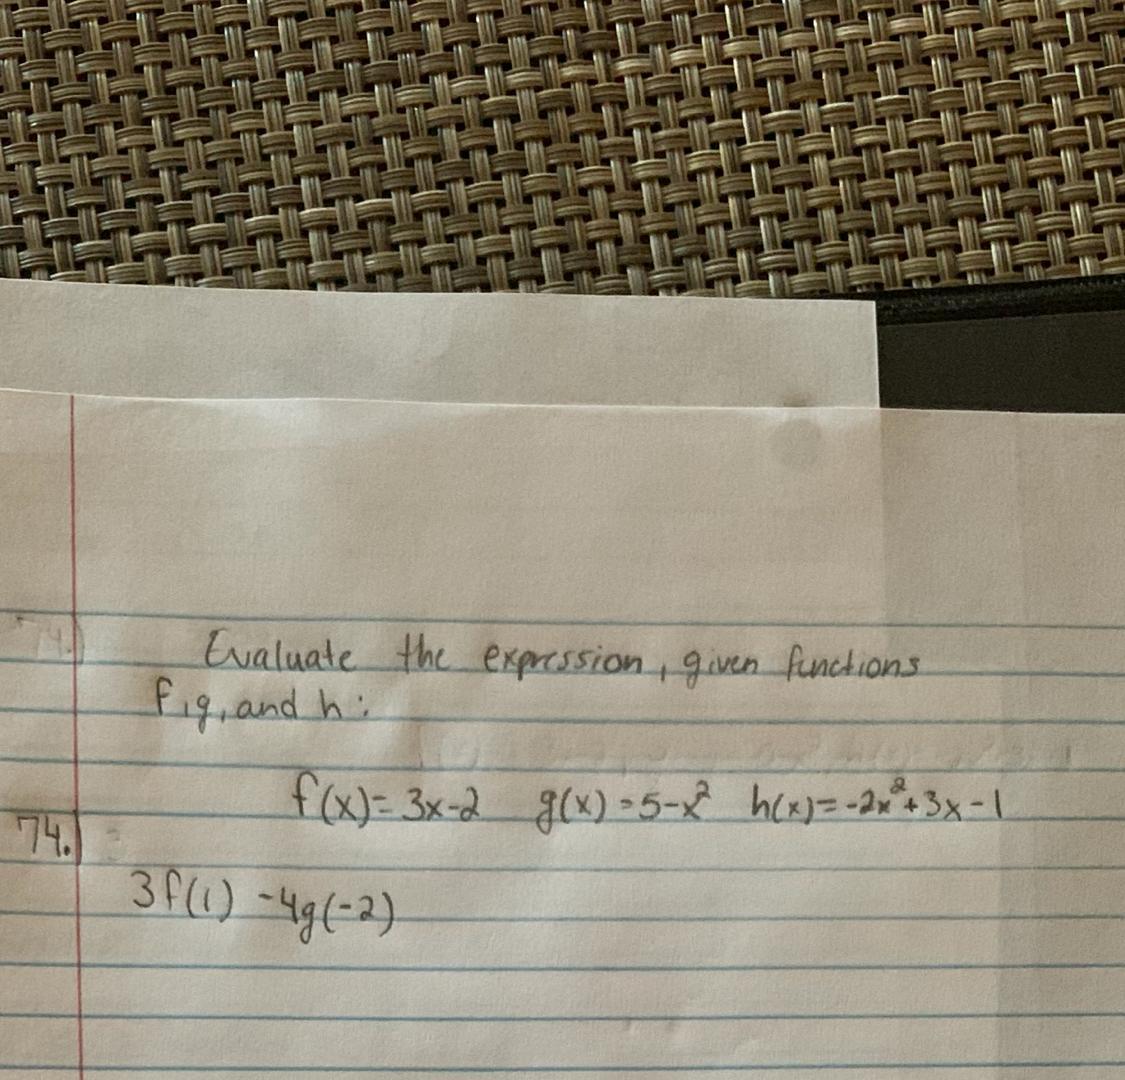 Evaluate the expression, given functions
f, g, and h:
f(x)= 3x-2 g(x) = 5-x² h(x)= -2x²+3x-1
74.)
3f(1) -4g(-2)